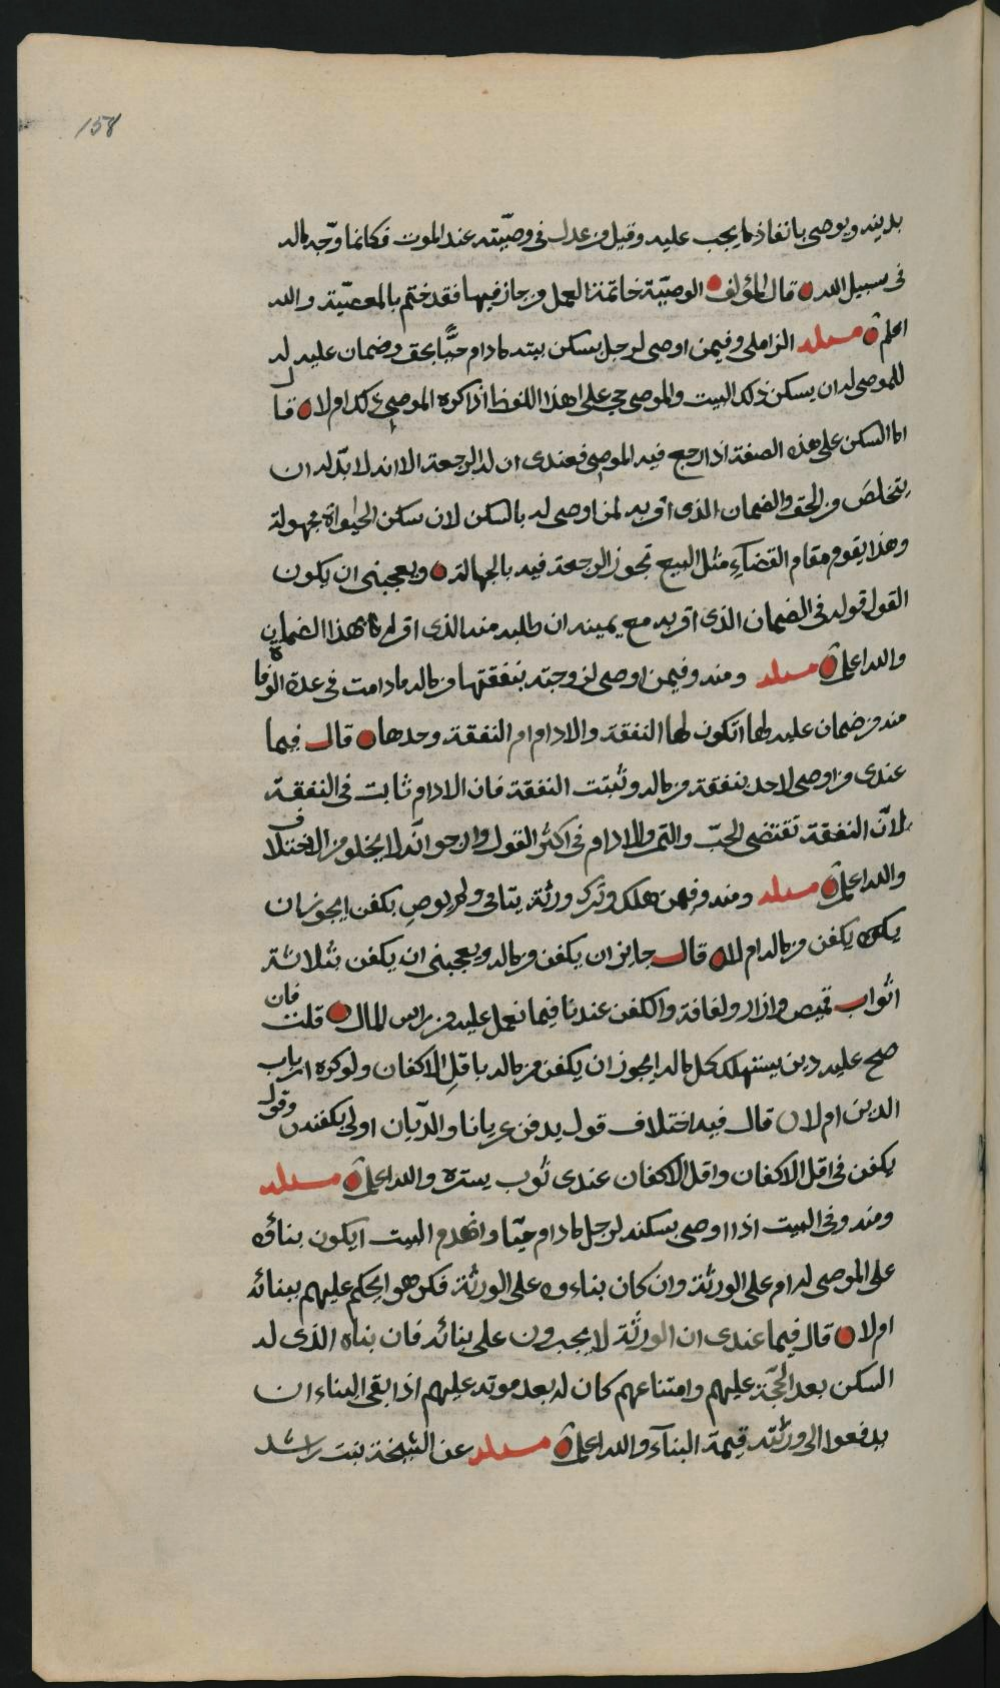 158
بدينه ويوصى بانفاذ ما يجب عليه وقيل من عدل فى وصيّته عند الموت فكانما وجّه ماله
فى سبيل الله قال المؤلف الوصيّة خاتمة العمل من جاز فيها فقد ختم بالمعصيّة والله
اعلم مسئله الزاملى وفيمن اوصى لرجل بسكن بيته مادام حيًّا بحق وضمان عليه له
للموصى له ان يسكن ذلك البيت والموصى حى على هذا اللفظ اذا كره الموصى ذلك ام لا قال
اما السكن على هذه الصفة اذا رجع فيه الموصى فعندى ان له الرجعة الا انه لا بدّ له ان
يتخلص من الحق والضمان الذى اقر به لمن اوصى له بالسكن لان سكن الحيواة مجهولة
وهذا يقوم مقام القضآء مثل البيع تجوز الرجعة فيه بالجهالة ويعجبنى ان يكون
القول قوله فى الضمان الذى اقر به مع يمينه ان طلبه منه الذى اقر له هذا الضمان
والله اعلم مسئله ومنه وفيمن اوصى لزوجته بنفقتها من ماله مادامت فى عدة الوفاة
منه من ضمان عليه لها اتكون لها النفقة والادام ام النفقة وحدها قال فيما
عندى من اوصى لاحد بنفقة من ماله وثبتت النفقة فان الادام ثابت فى النفقة
لانّ النفقة تقتضى الحبّ والتمر والادام فى اكثر القول وارجو انّه لا يخلو من الاختلاف
والله اعلم مسئله ومنه وفيمن هلك وترك ورثة يتامى ولم يوص بكفن ايجوز ان
يكفن من ماله ام لا قال جايز ان يكفن من ماله ويعجبنى ان يكفن بثلاثة
اثواب قميص وازار ولفافة والكفن عندنا فيما نعمل عليه من راس المال قلت فان
صح عليه دين يستهلك كل ماله ايجوز ان يكفن من ماله باقل الاكفان ولو كره ارباب
الدين ام لا قال فيه اختلاف قول يدفن عريانا والدّيان اولى بكفنه وقول
يكفن فى اقل الاكفان واقل الاكفان عندى ثوب يستره والله اعلم مسئله
ومنه وفى البيت اذا اوصى بسكنه لرجل مادام حيّا وانهدم البيت ايكون بناؤه
على الموصى له ام على الورثة وان كان بناءوه على الورثة فكرهوا ايحكم عليهم ببنائه
ام لا قال فيما عندى ان الورثة لا يجبرون على بنائه فان بناه الذى له
السكن بعد الحجّة عليهم وامتناعهم كان له بعد موته عليهم اذا بقى البناء ان
يدفعوا الى ورثته قيمة البنآء والله اعلم مسئله عن الشيخة بنت راشد